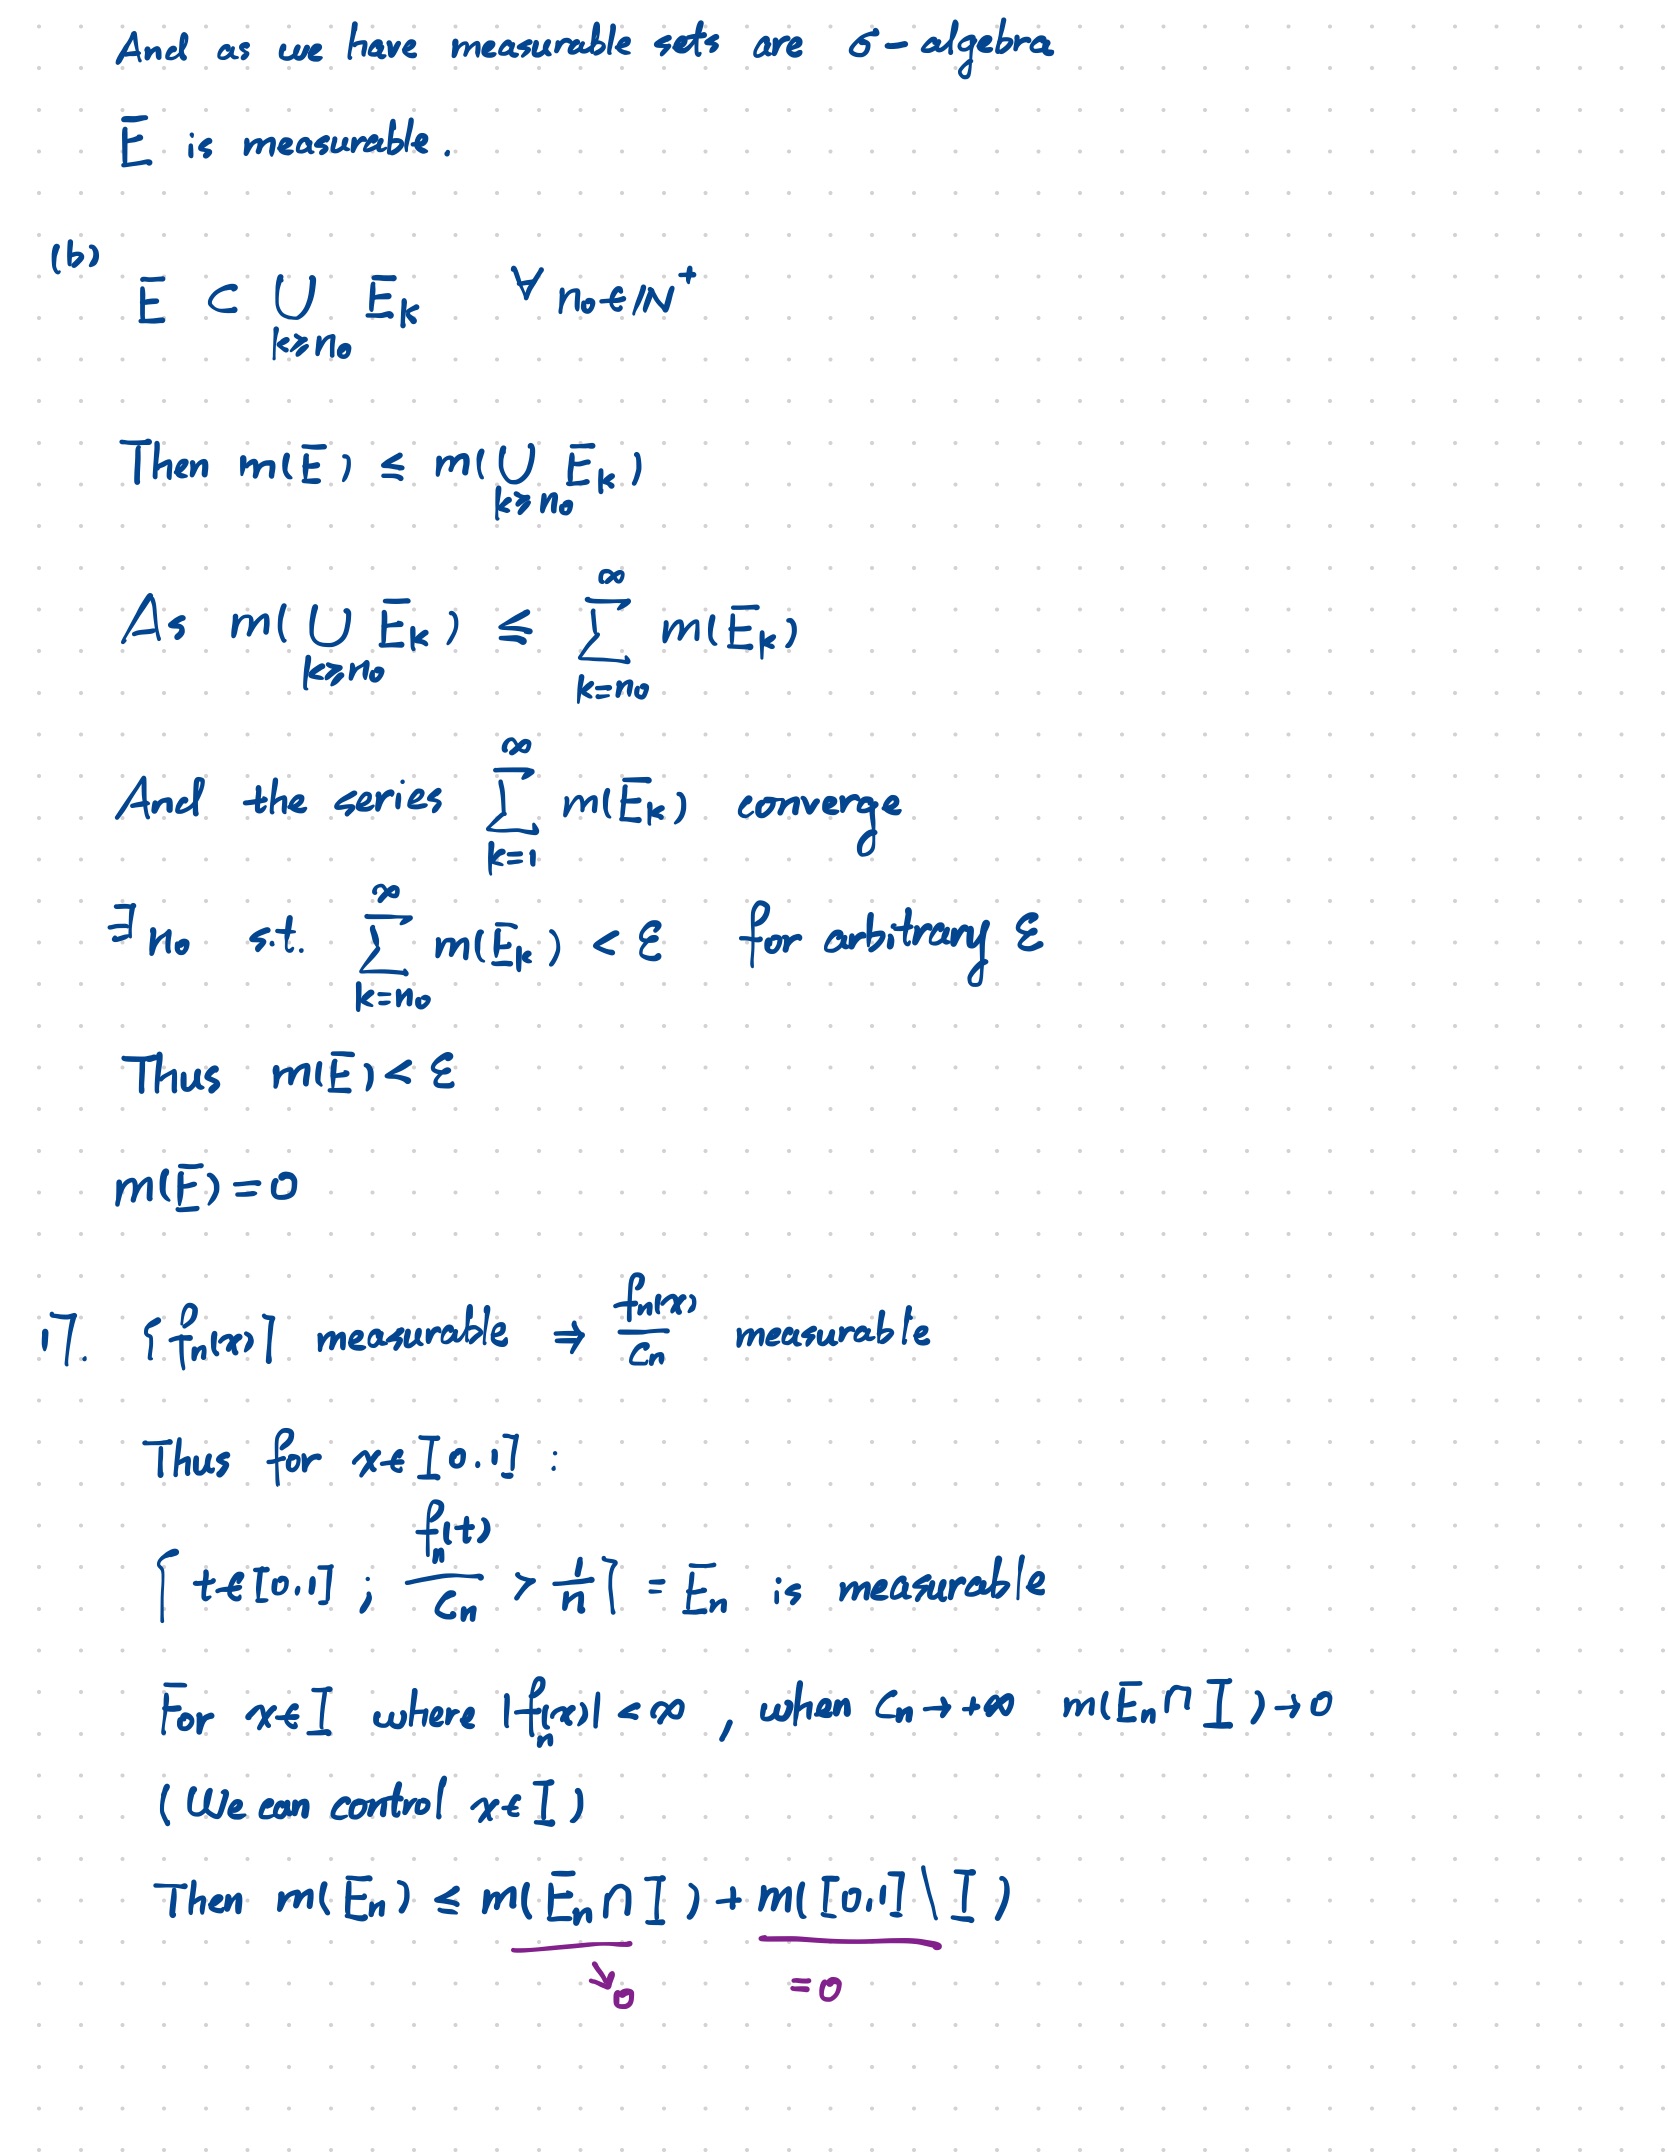 And as we have measurable sets are σ-algebra
E is measurable.
(b) E ⊂ ⋃_{k≥n₀} E_k ∀ n₀∈ℕ⁺
Then m(E) ≤ m(⋃_{k≥n₀} E_k)
As m(⋃_{k≥n₀} E_k) ≤ ∑_{k=n₀}^{∞} m(E_k)
And the series ∑_{k=1}^{∞} m(E_k) converge
∃ n₀ s.t. ∑_{k=n₀}^{∞} m(E_k) < ε for arbitrary ε
Thus m(E) < ε
m(E) = 0
17. {f_n(x)} measurable ⇒ f_n(x)/c_n measurable
Thus for x∈[0.1] :
{ t∈[0,1] ; f_n(t)/c_n > 1/n } = E_n is measurable
For x∈I where |f_n(x)| < ∞ , when c_n → +∞ m(E_n ∩ I) → 0
(We can control x∈I)
Then m(E_n) ≤ m(E_n ∩ I) + m([0,1] \ I)
↘0 =0